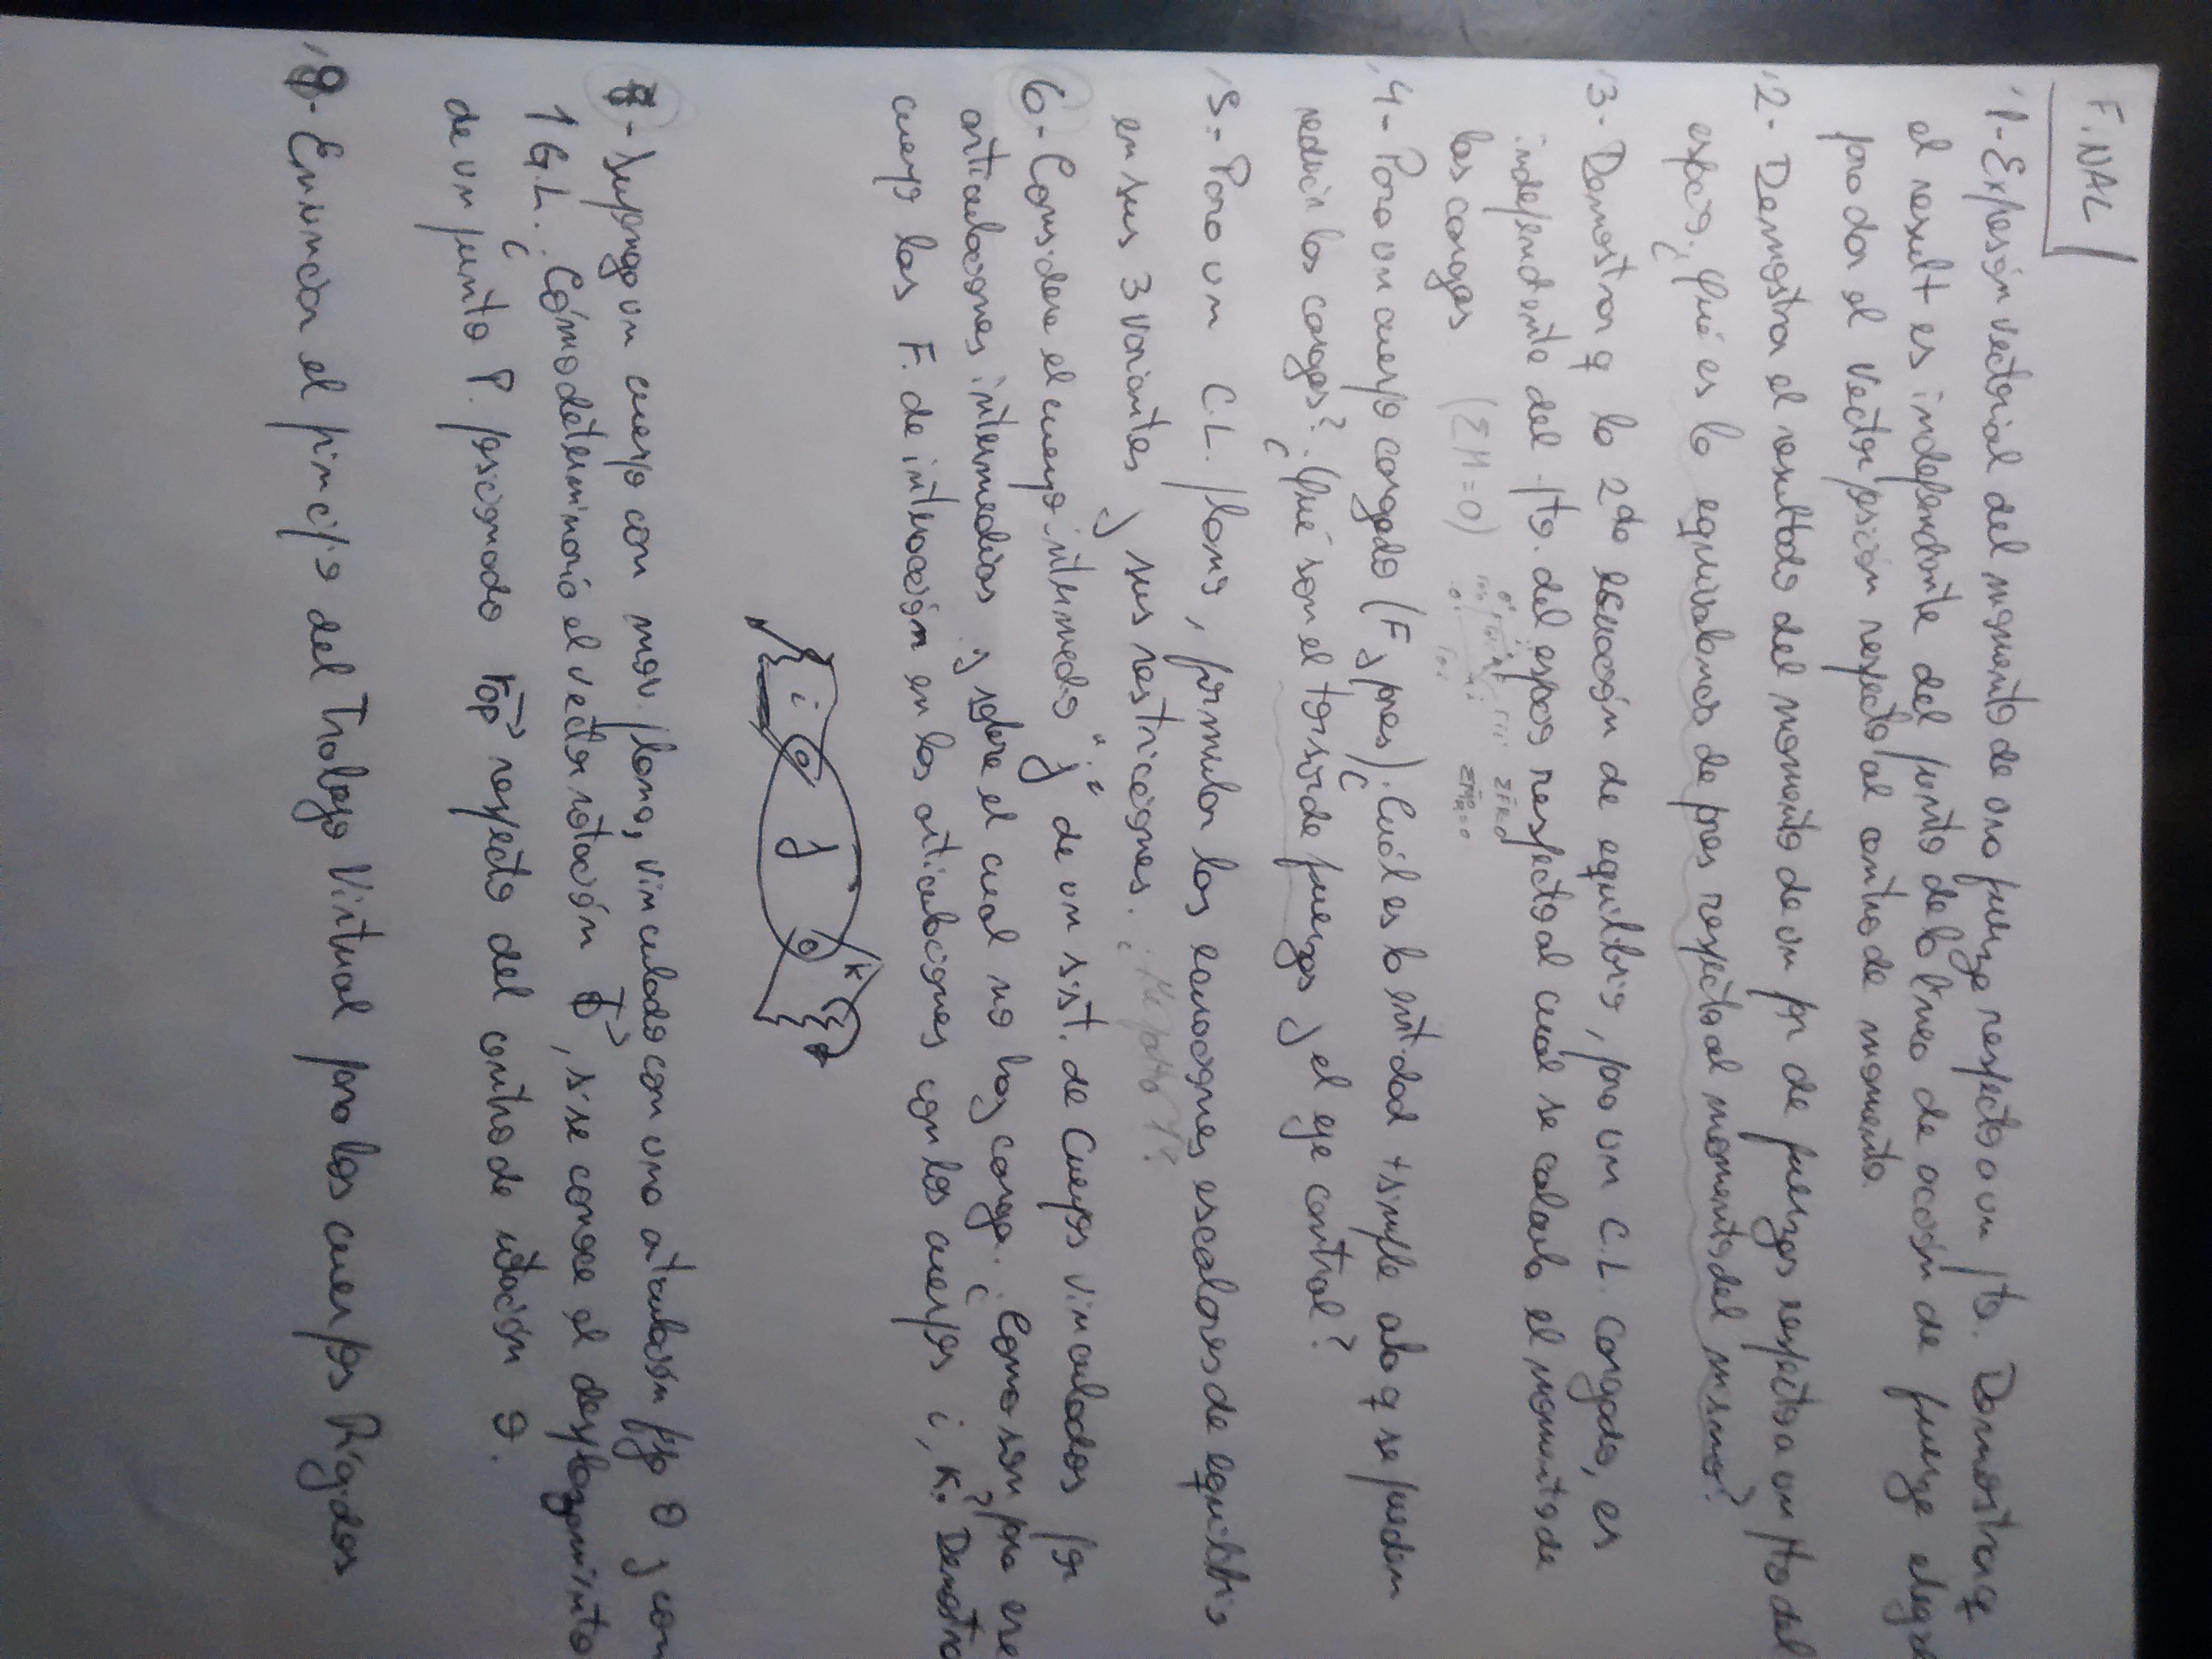 FINAL
1- Expresión vectorial del momento de una fuerza respecto a un pto. Demostrar q
el result es independiente del punto de la línea de acción de fuerza elegido
para dar el vector posición respecto al centro de momento.
2- Demostrar el resultado del momento de un par de fuerzas respecto a un pto del
espacio. ¿Qué es la equivalencia de pares respecto al momento del mismo?
3- Demostrar q la 2da ecuación de equilibrio, para un C.L. cargado, es
independiente del pto. del espacio respecto al cual se calcula el momento de
las cargas (ΣM=0)
4- Para un cuerpo cargado (F y pares). ¿Cuál es la entidad + simple a la q se pueden
reducir las cargas? ¿Qué son el torsor de fuerzas y el eje central?
5- Para un C.L. plano, formular las ecuaciones escalares de equilibrio
en sus 3 variantes y sus restricciones.
6- Considere el cuerpo intermedio "j" de un sist. de Cuerpos vinculados por
articulaciones intermedias y sobre el cual no hay carga. ¿Cómo son para ese
cuerpo las F. de interacción en las articulaciones con los cuerpos i, k? Demostrar
i
j
k
7- Suponga un cuerpo con mov. plano, vinculado con una articulación fija O y con
1 G.L. ¿Cómo determinaría el vector rotación θ, si se conoce el desplazamiento
de un punto P. posicionado rOP respecto del centro de rotación O.
8- Enunciar el principio del Trabajo Virtual para los cuerpos Rígidos